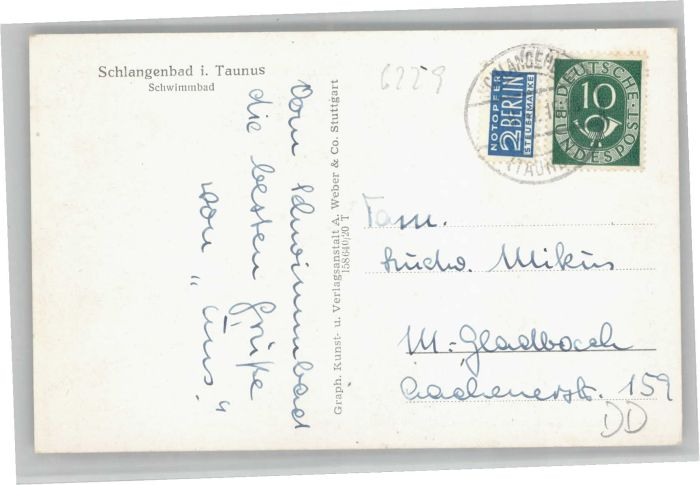 Schlangenbad i. Taunus
Schwimmbad
Vom Schwimmbad
die besten Grüße
von „uns“
Graph. Kunst- u. Verlagsanstalt A. Weber & Co. Stuttgart
158640/20 T
6229
NOTOPFER
2 BERLIN
STEUERMARKE
DEUTSCHE
10
BUNDESPOST
(TAUN
Fam.
Ludw. Mikus
M.-Gladbach
Aachenerstr. 159
DD